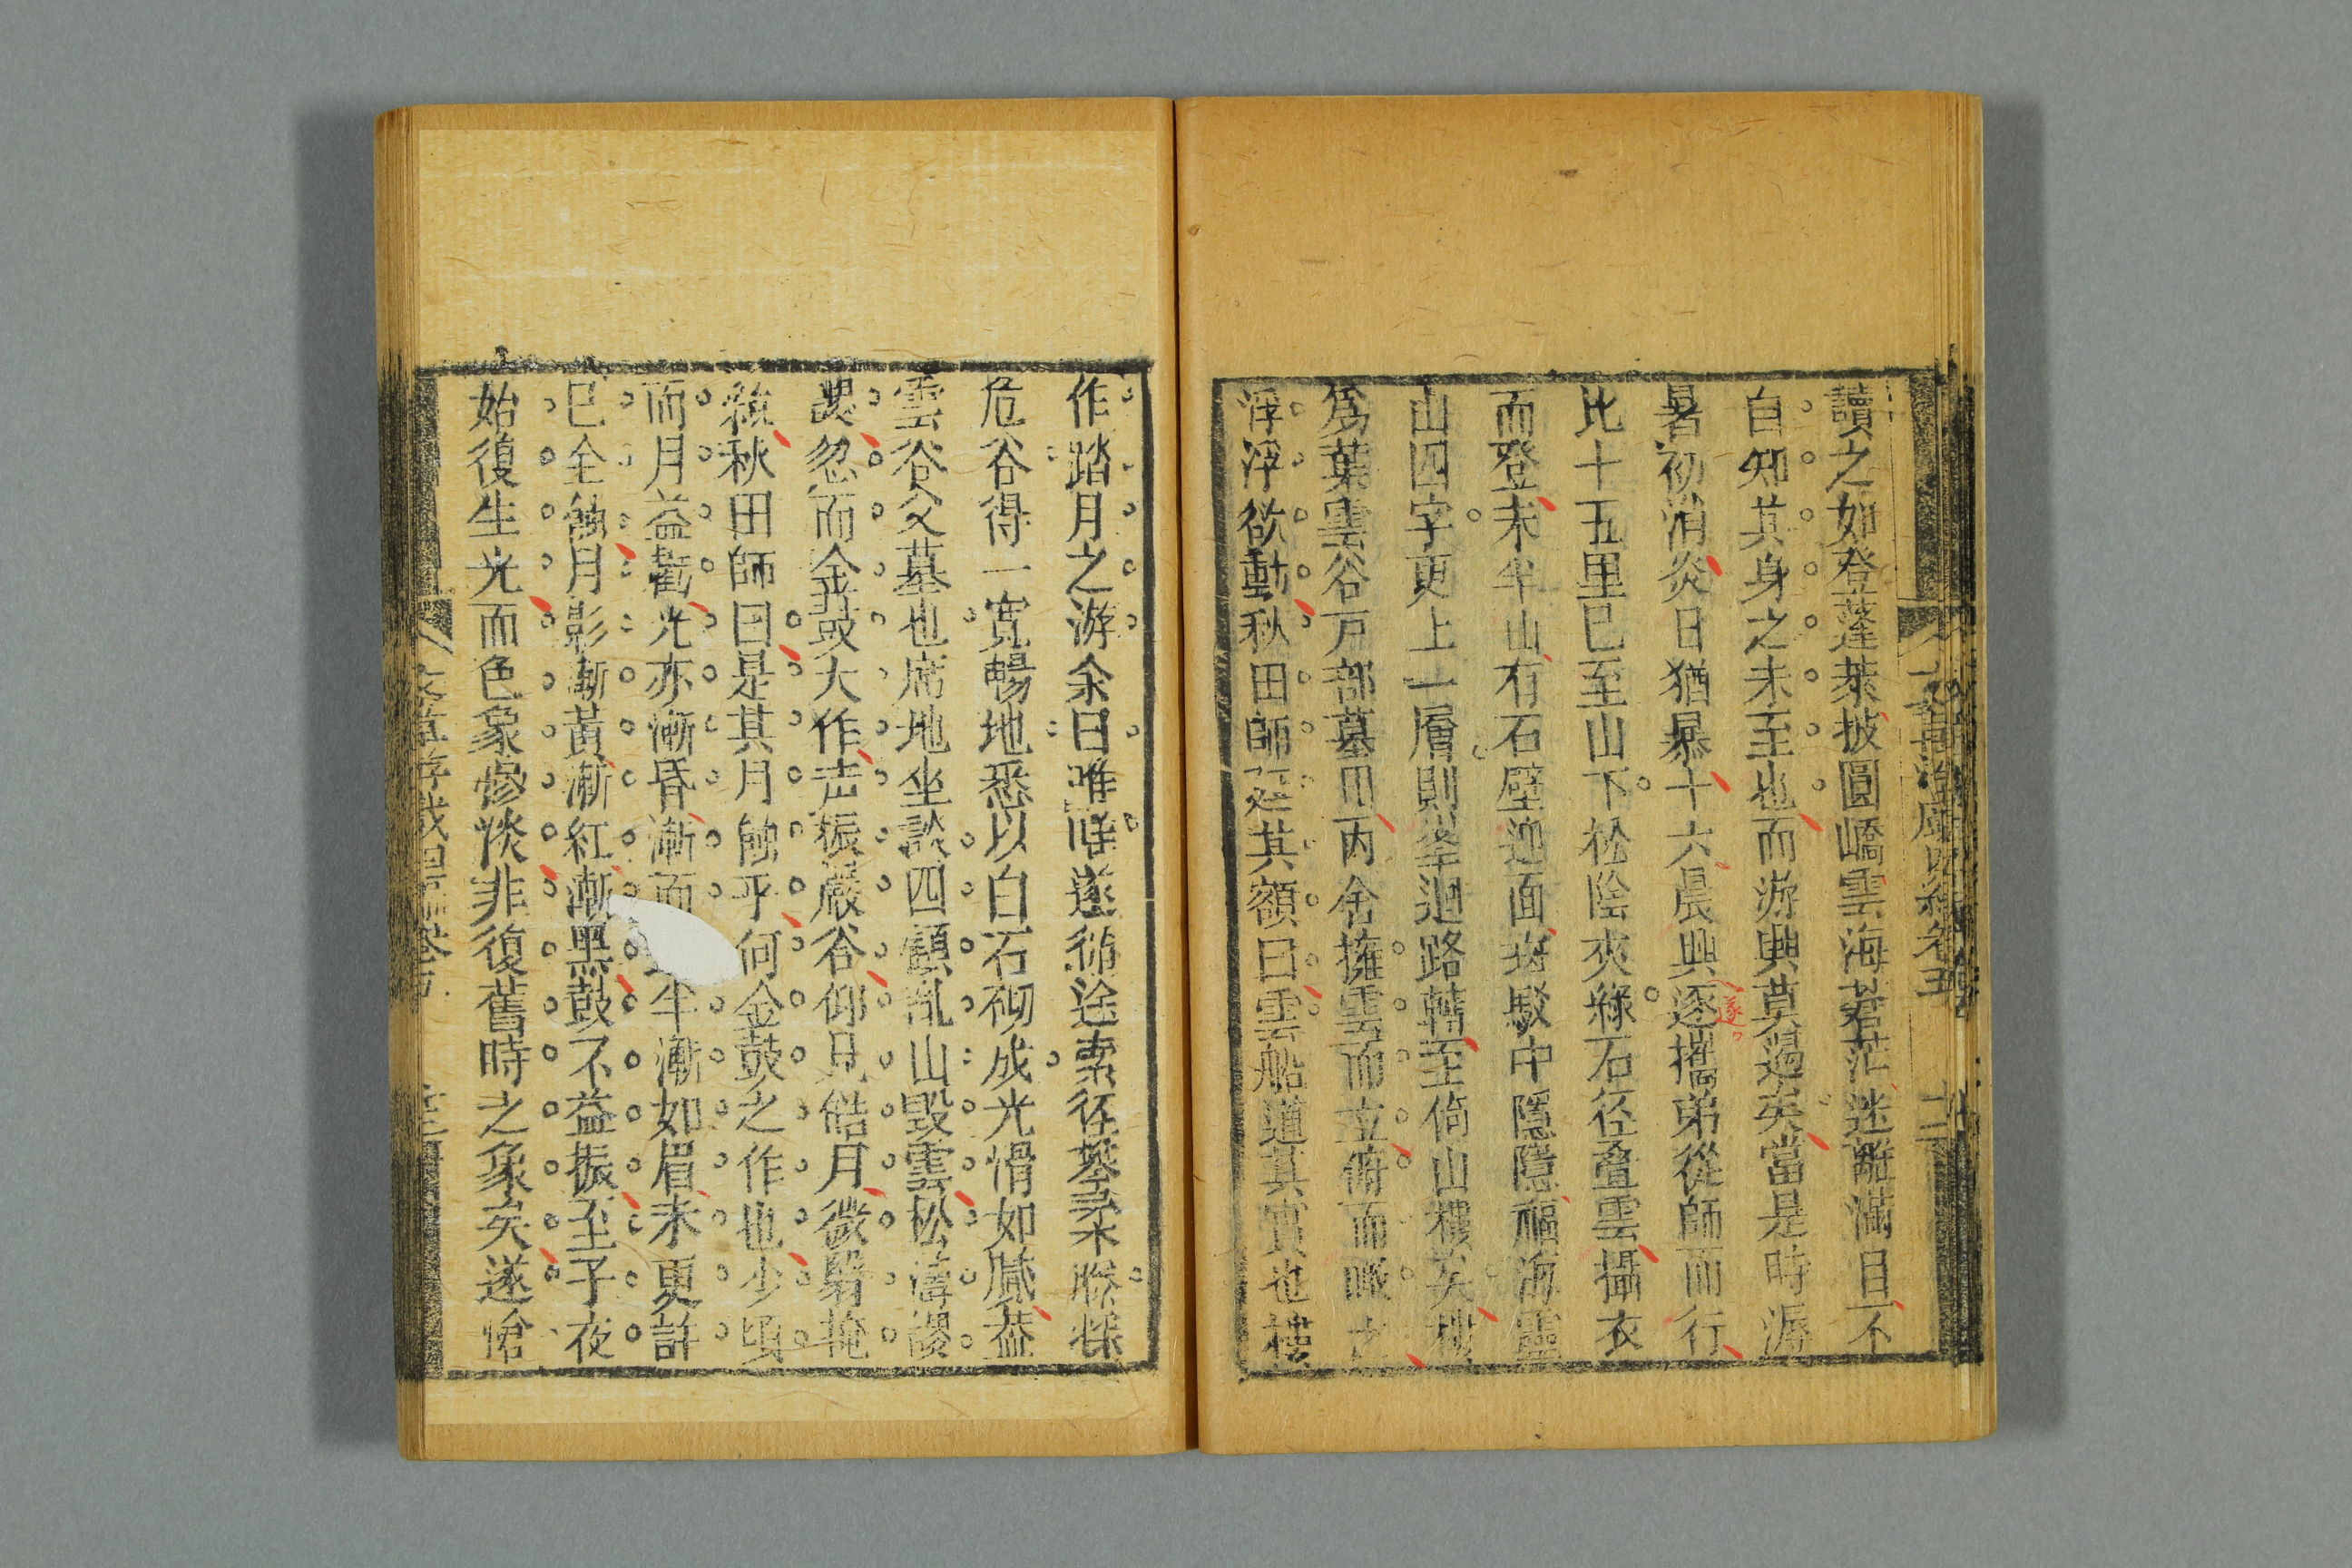 讀之如登蓬萊披圓嶠雲海若茫迷離滿目不
自知其身之未至也而游興莫遏矣當是時溽
暑初消炎日猶暴十六晨興逐攜弟從師而行
遂
比十五里已至山下松陰夾綠石徑叠雲攝衣
而登未半山有石壁迎面斑駁中隱隱福海靈
山四字更上一層則峯迴路轉至倚山樓矣樓
為葉雲谷戸部墓田丙舍擁雲而立俯而瞰之
浮浮欲動秋田師額曰雲船道其實也樓
作踏月之游余曰唯唯遂循途索徑攀
危谷得一寬暢地悉以白石砌成光滑如膩蓋
雲谷父墓也席地坐談四顧亂山毀雲松濤謖
謖忽而金鼓大作声振巖谷仰見皓月微翳掩
秋田師曰是其月蝕乎何金鼓之作也少頃
而月益光亦漸昏漸而半漸如眉未更許
已全蝕月影漸黃漸紅漸黑鼓不益振至子夜
始復生光而色象慘淡非復舊時之象矣遂愴